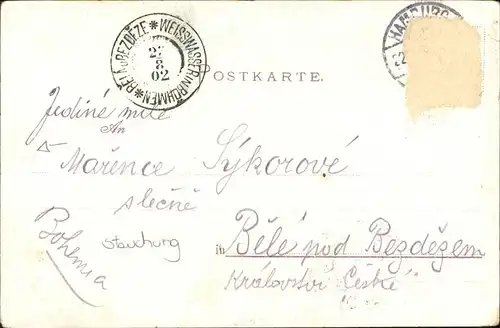 BĚLÁ u BEZDĚZE * WEISSWASSER IN BÖHMEN *
27
8
02
HAMBURG
POSTKARTE.
Jediné milé
An
Mařence Sýkorové
slečně
Bohemia
in Bělé pod Bezdězem
Království České